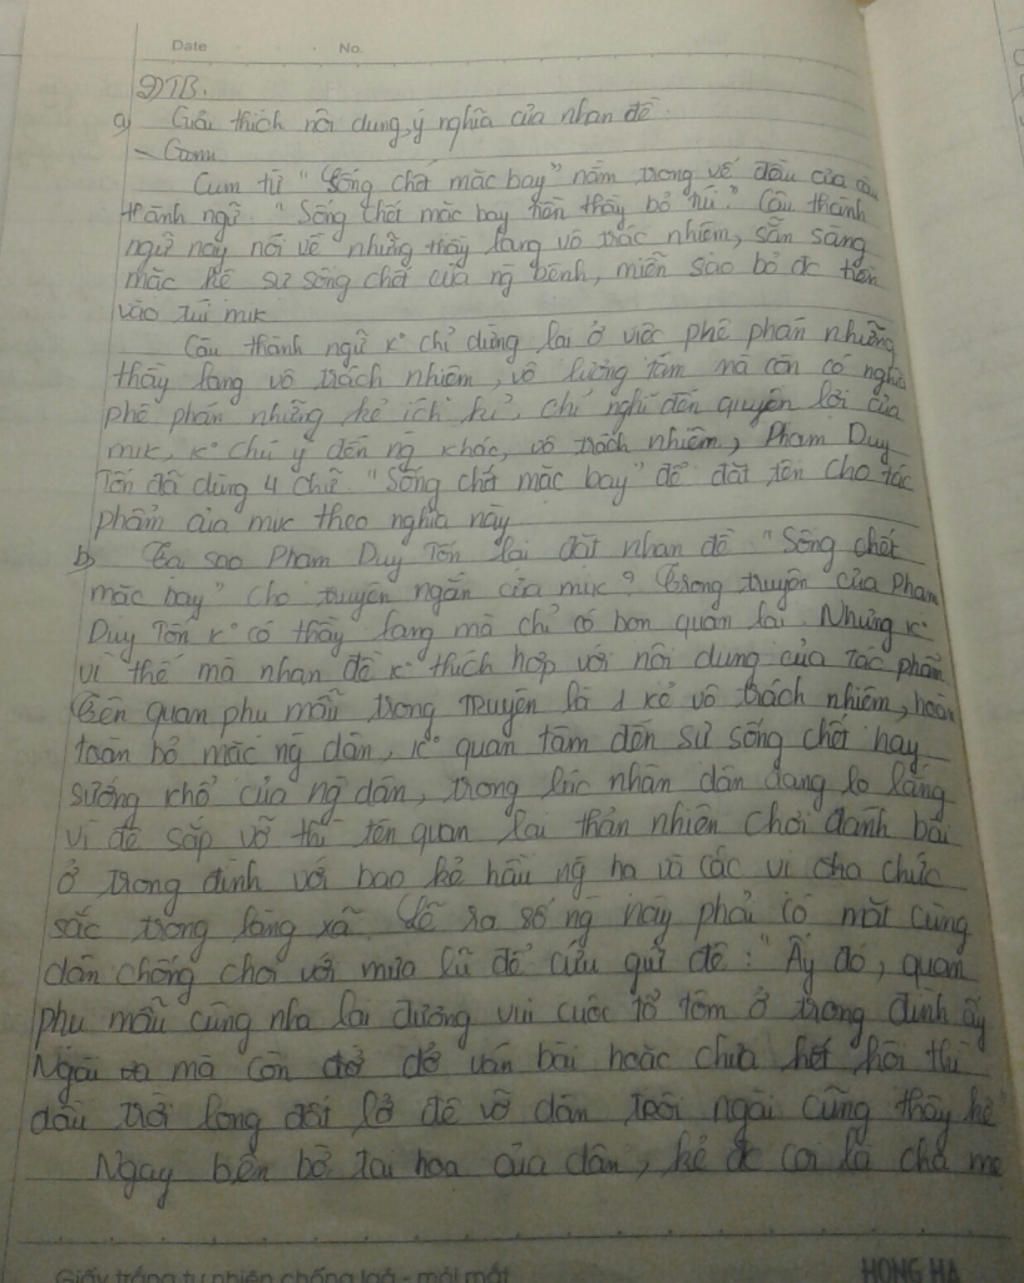 Date No.
2) TB.
a) Giải thích nội dung, ý nghĩa của nhan đề.
- Cụm
Cụm từ "Sống chết mặc bay" nằm trong vế đầu của câu
thành ngữ "Sống chết mặc bay tiền thầy bỏ túi". Câu thành
ngữ này nói về những thầy lang vô trác nhiệm, sẵn sàng
mặc kệ sự sống chết của ng bệnh, miễn sao bỏ đc tiền
vào túi mik
Câu thành ngữ k° chỉ dừng lại ở việc phê phán những
thầy lang vô trách nhiệm, vô lương tâm mà còn có nghĩa
phê phán những kẻ ích kỉ, chỉ nghĩ đến quyền lợi của
mik, k° chú ý đến ng khác, vô trách nhiệm, Phạm Duy
Tốn đã dùng 4 chữ "Sống chết mặc bay" để đặt tên cho tác
phẩm của mik theo nghĩa này
b) Tại sao Phạm Duy Tốn lại đặt nhan đề "Sống chết
mặc bay" cho truyện ngắn của mik? Trong truyện của Phạm
Duy Tốn k° có thầy lang mà chỉ có bọn quan lại. Nhưng k°
vì thế mà nhan đề k° thích hợp với nội dung của tác phẩm.
Tên quan phụ mẫu trong truyện là 1 kẻ vô trách nhiệm, hoàn
toàn bỏ mặc ng dân, k° quan tâm đến sự sống chết hay
sướng khổ của ng dân, trong lúc nhân dân đang lo lắng
vì đê sắp vỡ thì tên quan lại thản nhiên chơi đánh bài
ở trong đình với bao kẻ hầu ng hạ và các vị cha chức
sắc trong làng xã. Lẽ ra số ng này phải có mặt cùng
dân chống chọi với mưa lũ để cứu giữ đê: "Ấy đó, quan
phụ mẫu cùng nha lại đương vui cuộc tổ tôm ở trong đình ấy
Ngài mà còn dở dở ván bài hoặc chưa hết hội thì
dầu trời long đất lở đê vỡ dân trôi ngài cũng thây kệ"
Ngay bên bờ tai họa của dân, kẻ đc coi là cha mẹ
Giấy trắng tự nhiên chống loá - mỏi mắt
HONG HA